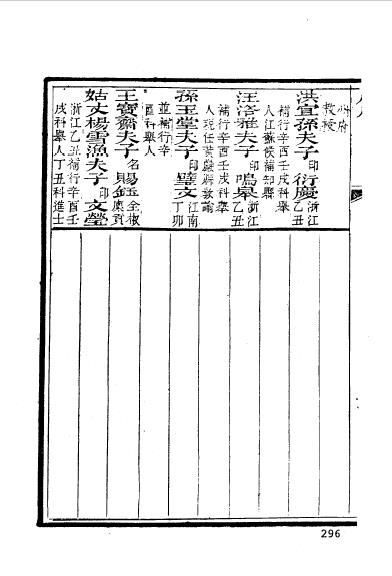 府
教授
洪宜孫夫子印衍慶浙江乙丑
補行辛酉壬戌科舉
人江蘇候補知縣
汪洛雅夫子印鳴皋浙江乙丑
補行辛酉壬戌科舉
人現任黃巖縣教諭
孫玉堂夫子印璧文江南丁卯
並補行辛
酉科舉人
王寶齋夫子名賜鈺全椒廩貢
姑丈楊雪漁夫子印文瑩
浙江乙丑補行辛酉壬
戌科舉人丁丑科進士
296